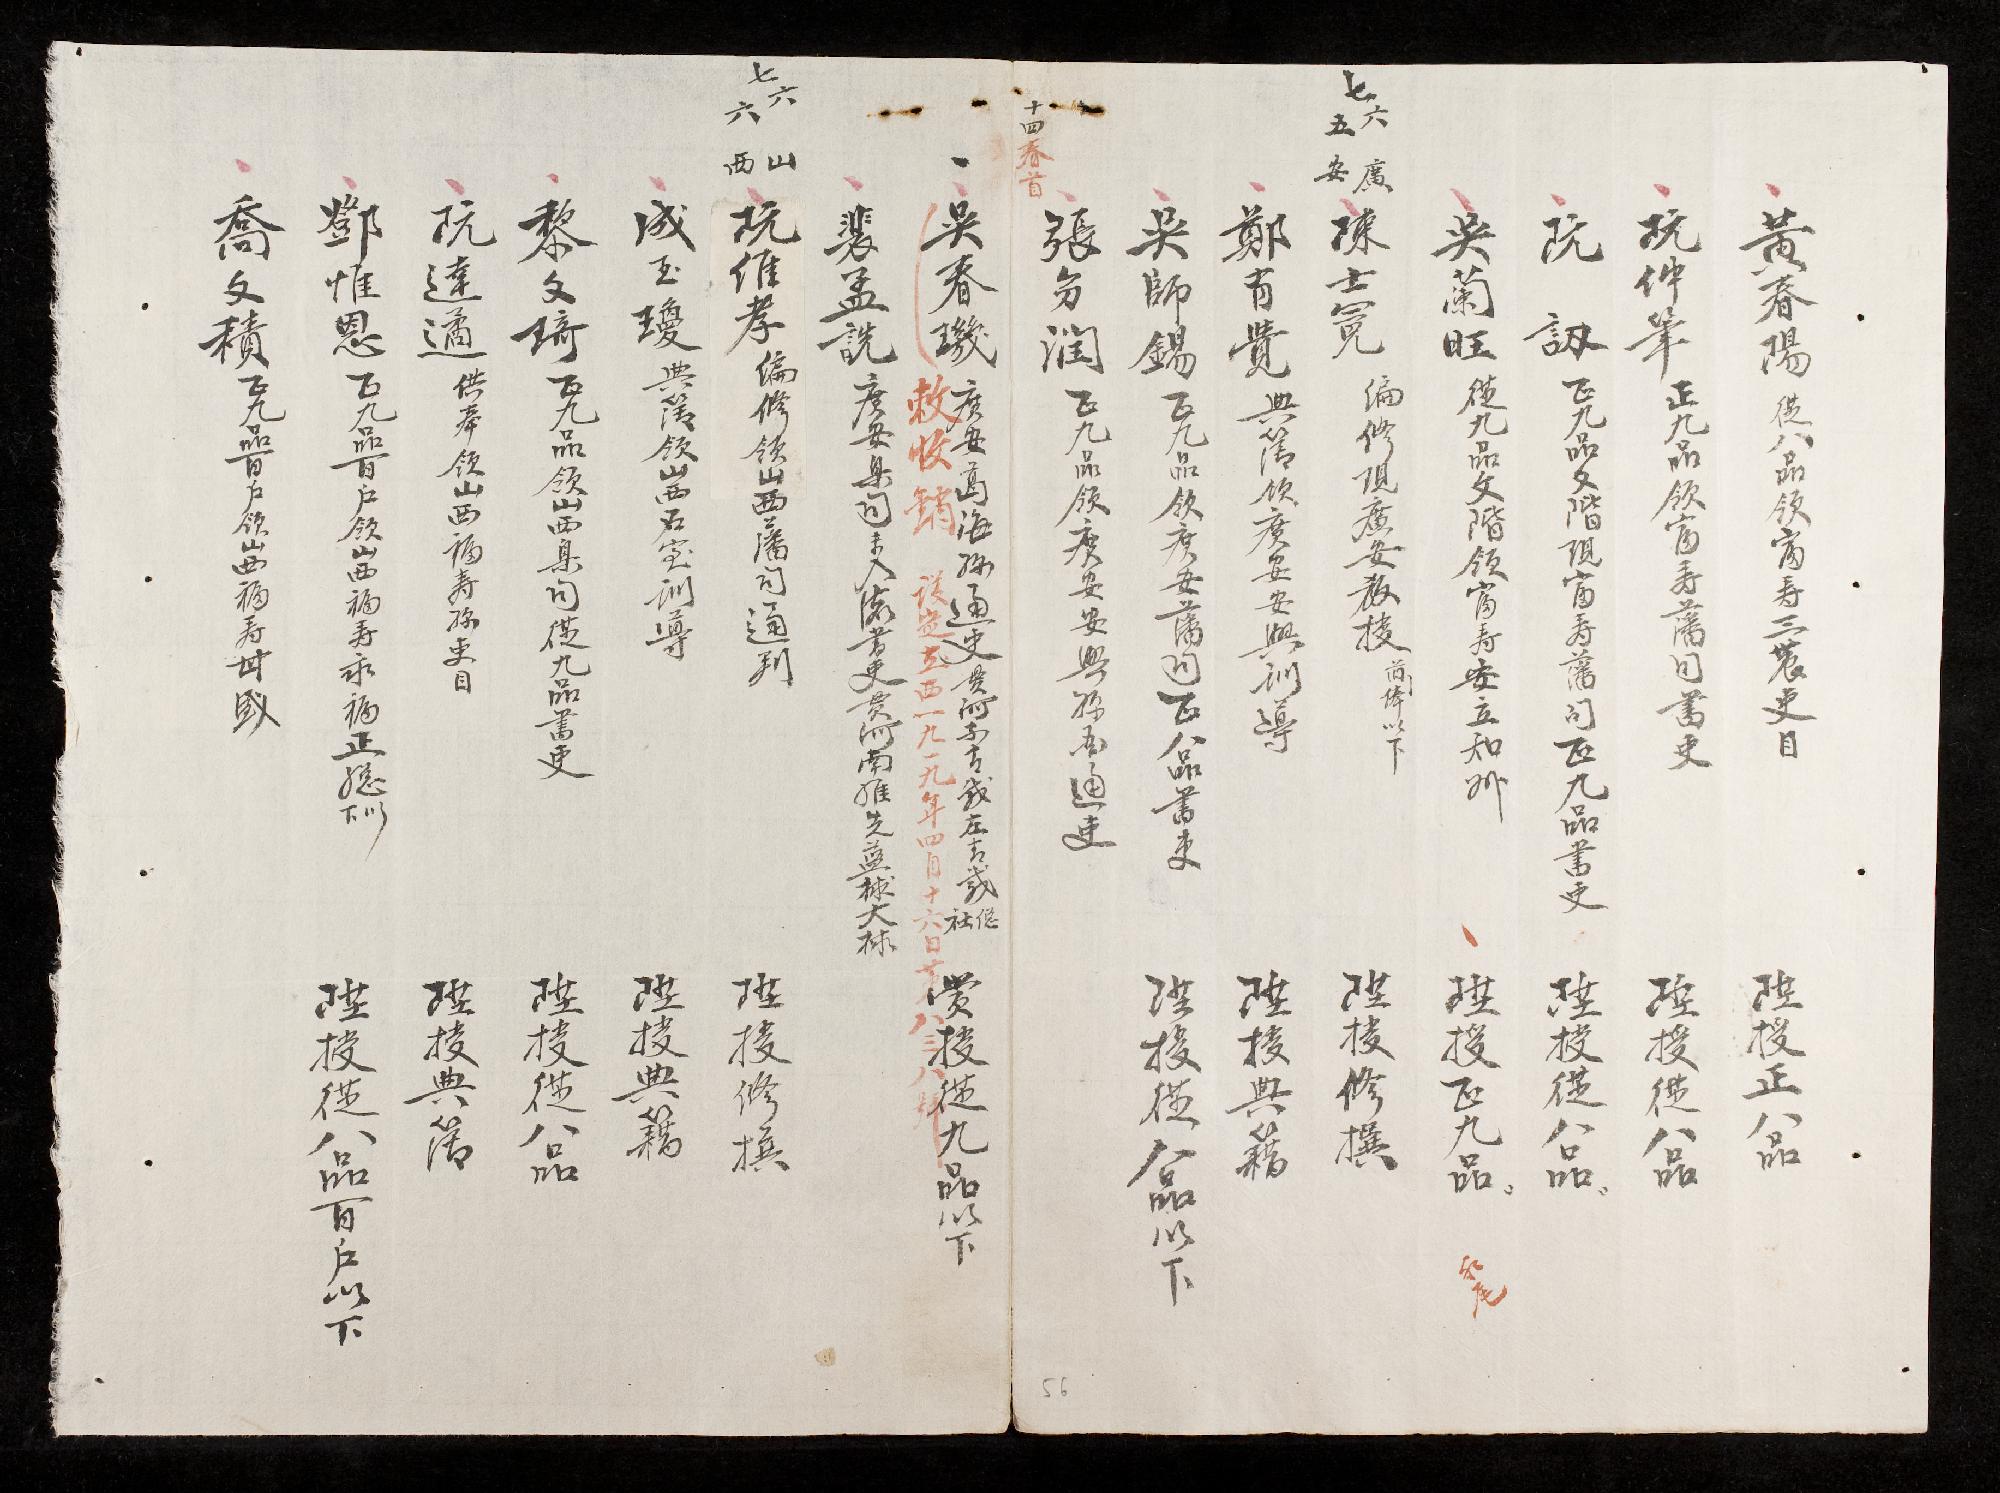 黄春陽 従八品領富寿三農吏目 陞授正八品
阮仲筆 正九品領富寿藩司書吏 陞授従八品
阮訒 正九品文階現富寿藩司正九品書吏 陞授従八品。
吳蘭旺 従九品文階領富寿安立知州 陞授正九品。
七六 廣
五 安
陳士 編修現廣安教授 以下 陞授修撰
鄭有 典簿領廣安安興訓導 陞授典籍
吳師錫 正九品領廣安藩司正八品書吏 陞授従八品以下
張 潤 正九品領廣安安興 通吏
十四春首
吳春璣 廣安葛海 通吏貫河 左青威 社 賞授従九品以下
敕收銷 一九一九年四月十六日 八 八號
裴孟 廣安臬司未入流書吏貫河南維先
七六 山
六 西
阮維孝 編修領山西藩司通判 陞授修撰
成玉瓊 典簿領山西石室訓導 陞授典籍
黎文琦 正九品領山西臬司従九品書吏 陞授従八品
阮達 供奉領山西福寿 吏目 陞授典簿
鄧惟恩 正九品百戶領山西福寿永福正總 以下 陞授従八品百戶以下
喬文積 正九品百戶領山西福寿
56